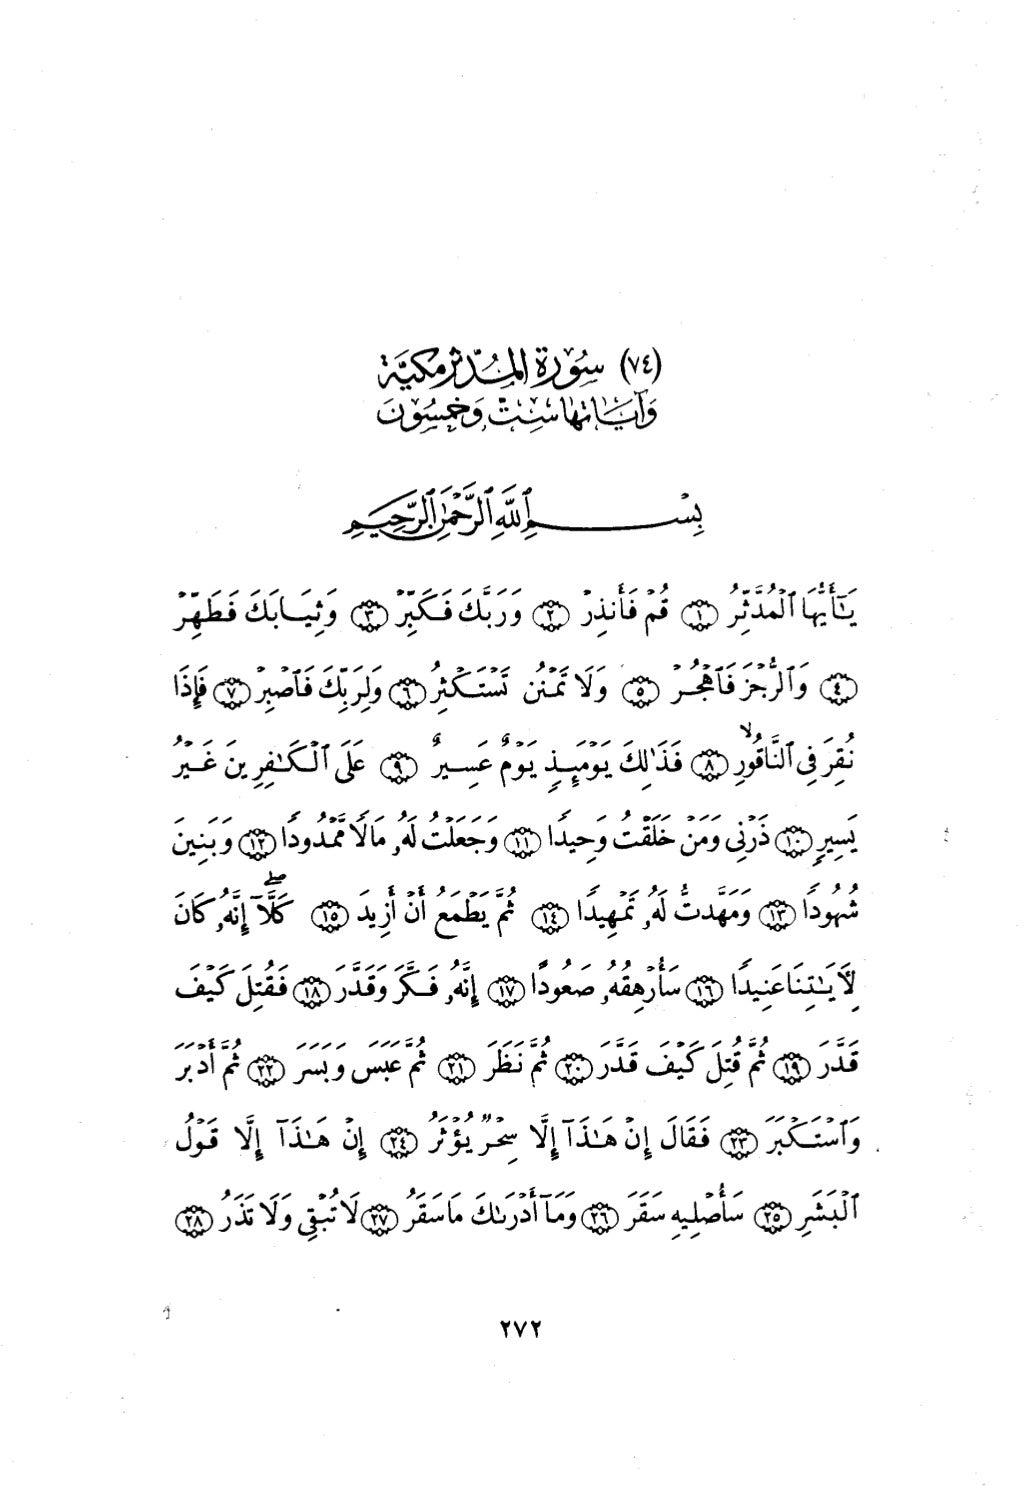 (٧٤) سُوْرَةِ المُدّثر مَكيَّة
وَآيَاتهَا سِتٌّ وَخَمسُوْنَ
بِسْمِ ٱللَّهِ ٱلرَّحْمَٰنِ ٱلرَّحِيمِ
يَٰٓأَيُّهَا ٱلْمُدَّثِّرُ ١ قُمْ فَأَنذِرْ ٢ وَرَبَّكَ فَكَبِّرْ ٣ وَثِيَابَكَ فَطَهِّرْ
٤ وَٱلرُّجْزَ فَٱهْجُرْ ٥ وَلَا تَمْنُن تَسْتَكْثِرُ ٦ وَلِرَبِّكَ فَٱصْبِرْ ٧ فَإِذَا
نُقِرَ فِى ٱلنَّاقُورِ ٨ فَذَٰلِكَ يَوْمَئِذٍ يَوْمٌ عَسِيرٌ ٩ عَلَى ٱلْكَٰفِرِينَ غَيْرُ
يَسِيرٍ ١٠ ذَرْنِى وَمَنْ خَلَقْتُ وَحِيدًا ١١ وَجَعَلْتُ لَهُۥ مَالًا مَّمْدُودًا ١٢ وَبَنِينَ
شُهُودًا ١٣ وَمَهَّدتُّ لَهُۥ تَمْهِيدًا ١٤ ثُمَّ يَطْمَعُ أَنْ أَزِيدَ ١٥ كَلَّآ ۖ إِنَّهُۥ كَانَ
لِءَايَٰتِنَا عَنِيدًا ١٦ سَأُرْهِقُهُۥ صَعُودًا ١٧ إِنَّهُۥ فَكَّرَ وَقَدَّرَ ١٨ فَقُتِلَ كَيْفَ
قَدَّرَ ١٩ ثُمَّ قُتِلَ كَيْفَ قَدَّرَ ٢٠ ثُمَّ نَظَرَ ٢١ ثُمَّ عَبَسَ وَبَسَرَ ٢٢ ثُمَّ أَدْبَرَ
وَٱسْتَكْبَرَ ٢٣ فَقَالَ إِنْ هَٰذَآ إِلَّا سِحْرٌ يُؤْثَرُ ٢٤ إِنْ هَٰذَآ إِلَّا قَوْلُ
ٱلْبَشَرِ ٢٥ سَأُصْلِيهِ سَقَرَ ٢٦ وَمَآ أَدْرَىٰكَ مَا سَقَرُ ٢٧ لَا تُبْقِى وَلَا تَذَرُ ٢٨
٢٧٢